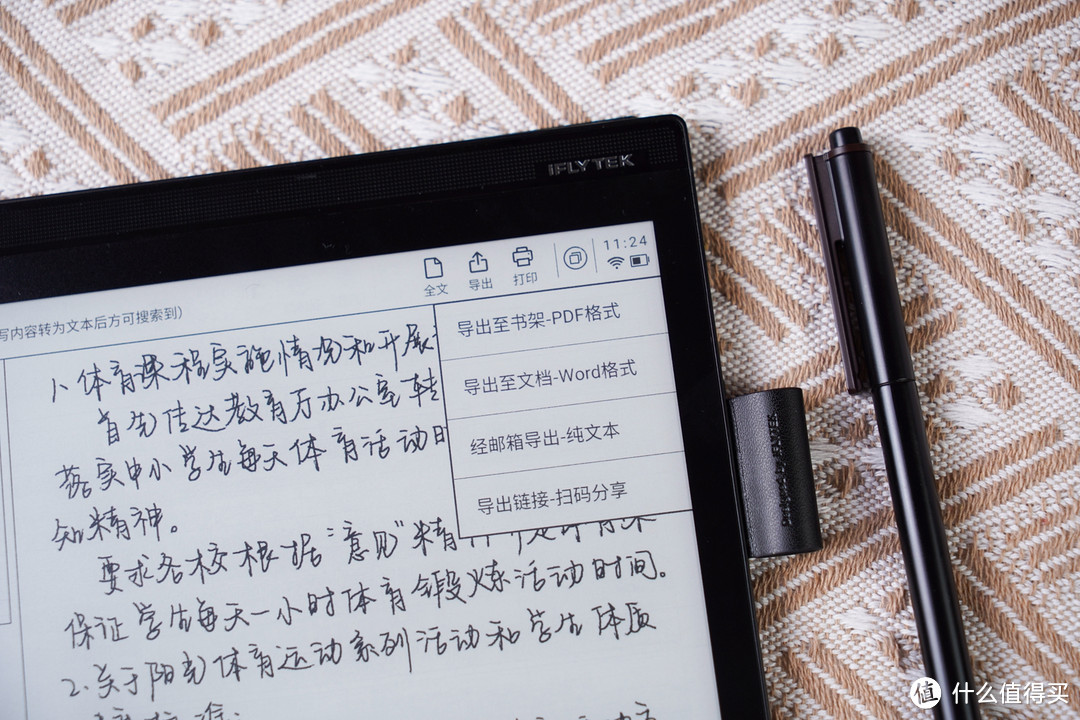 iFLYTEK
11:24
全文 导出 打印
写内容转为文本后方可搜索到）
导出至书架-PDF格式
导出至文档-Word格式
经邮箱导出-纯文本
导出链接-扫码分享
1、体育课程实施情况和开展
首先传达教育厅办公室转
落实中小学生每天体育活动时
知精神。
要求各校根据“意见”精
保证学生每天一小时体育锻炼活动时间。
2.关于阳光体育运动系列活动和学生体质
值 什么值得买